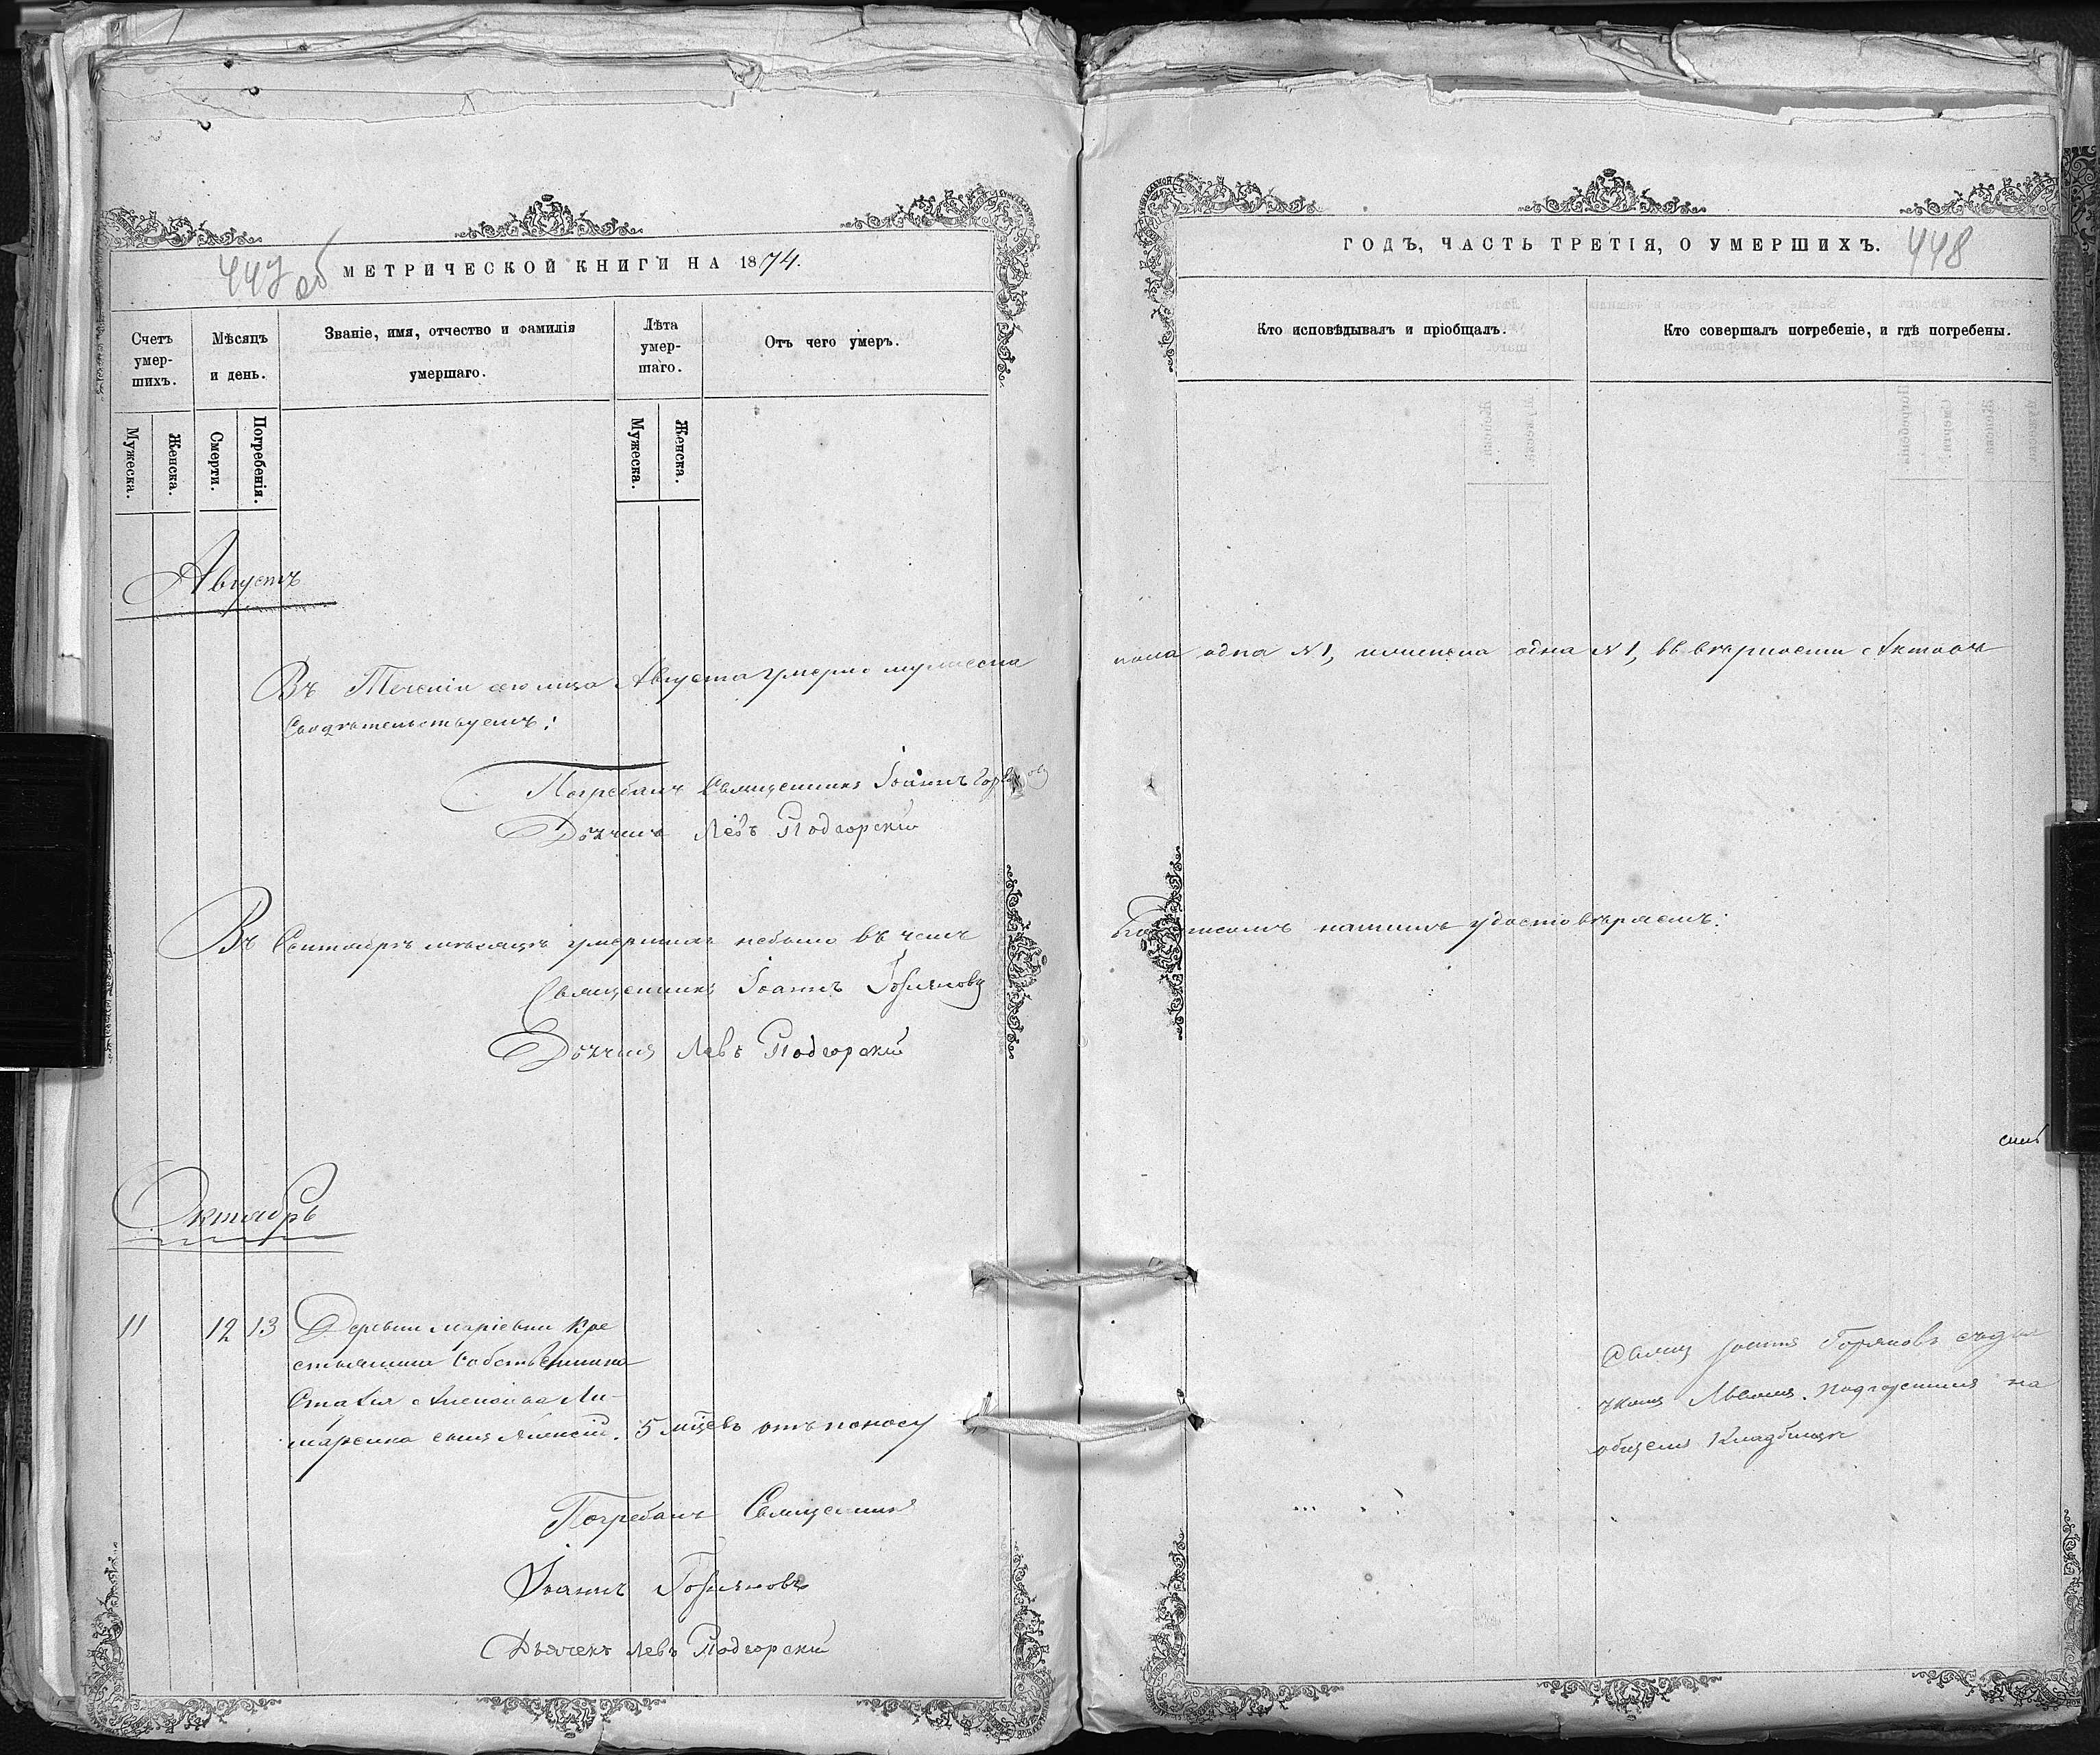 447 об
МЕТРИЧЕСКОЙ КНИГИ НА 1874.
Счетъ умер- шихъ.
Мѣсяцъ и день.
Званіе, имя, отчество и фамилія умершаго.
Лѣта умер- шаго.
Отъ чего умеръ.
Мужеска.
Женска.
Смерти.
Погребенія.
Мужеска.
Женска.
Августъ
Въ Теченіи сего мца Августа умерло мужеска
Свидѣтельствуемъ:
Погребалъ Священникъ Іоаннъ
Дьячекъ Левъ Подгорскій
Въ Сентябрѣ мѣсяцѣ умершихъ небыло въ чемъ
Священникъ Іоаннъ Горяновъ
Дьячекъ Левъ Подгорскій
Октябрь
11 12 13 Деревни Маріевки Кре
стьянина Собственника
Ли-
сынъ Алексій. 5 мцевъ отъ поносу
Погребалъ Священникъ
Іоаннъ Горяновъ
Дьячекъ Левъ Подгорскій
ГОДЪ, ЧАСТЬ ТРЕТІЯ, О УМЕРШИХЪ.
448
Кто исповѣдывалъ и пріобщалъ.
Кто совершалъ погребеніе, и гдѣ погребены.
пола одна №1, женска одна №1, въ вѣрности Актовъ
подписомъ нашимъ удостовѣряемъ:
Свящ Іоаннъ Горяновъ съ дья
чкомъ Львомъ Подгорскимъ на
общемъ Кладбищѣ